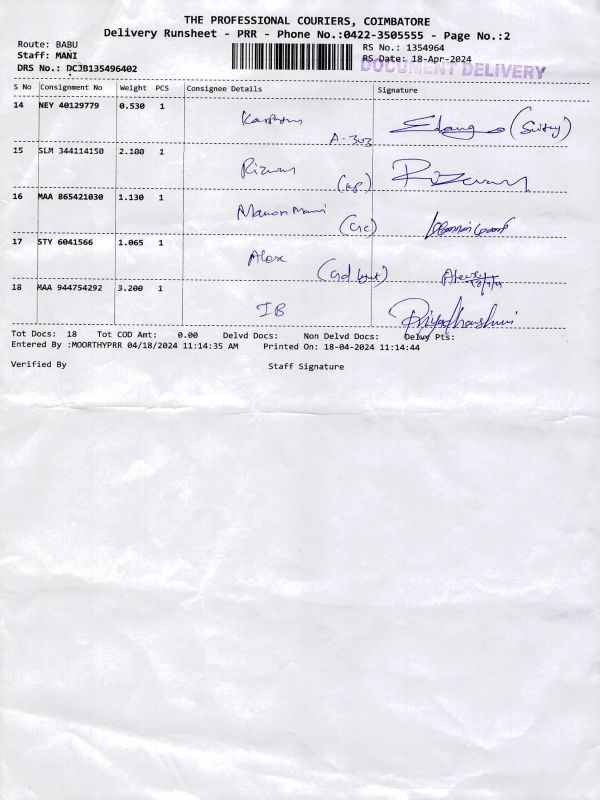 THE PROFESSIONAL COURIERS, COIMBATORE
Delivery Runsheet - PRR - Phone No.:0422-3505555 - Page No.:2
Route: BABU
Staff: MANI
DRS No.: DCJB135496402
RS No.: 1354964
RS Date: 18-Apr-2024
DOCUMENT DELIVERY
S No Consignment No Weight PCS Consignee Details Signature
14 NEY 40129779 0.530 1
A-303
15 SLM 344114150 2.100 1 Rizwan Rizwan
16 MAA 865421030 1.130 1
17 STY 6041566 1.065 1 Alex Alex
18 MAA 944754292 3.200 1 IB Priyadharshini
Tot Docs: 18 Tot COD Amt: 0.00 Delvd Docs: Non Delvd Docs: Delvy Pts:
Entered By :MOORTHYPRR 04/18/2024 11:14:35 AM Printed On: 18-04-2024 11:14:44
Verified By Staff Signature